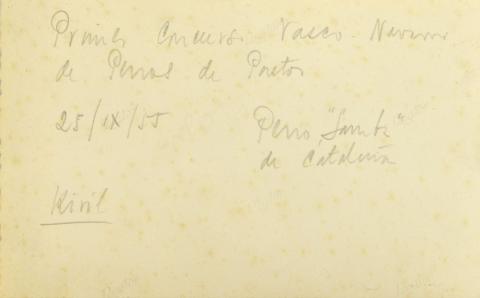 Primer Concurso Vasco-Navarro
de Perros de Pastor
25/IX/55
Perro "Samba"
de Cataluña
Kivil